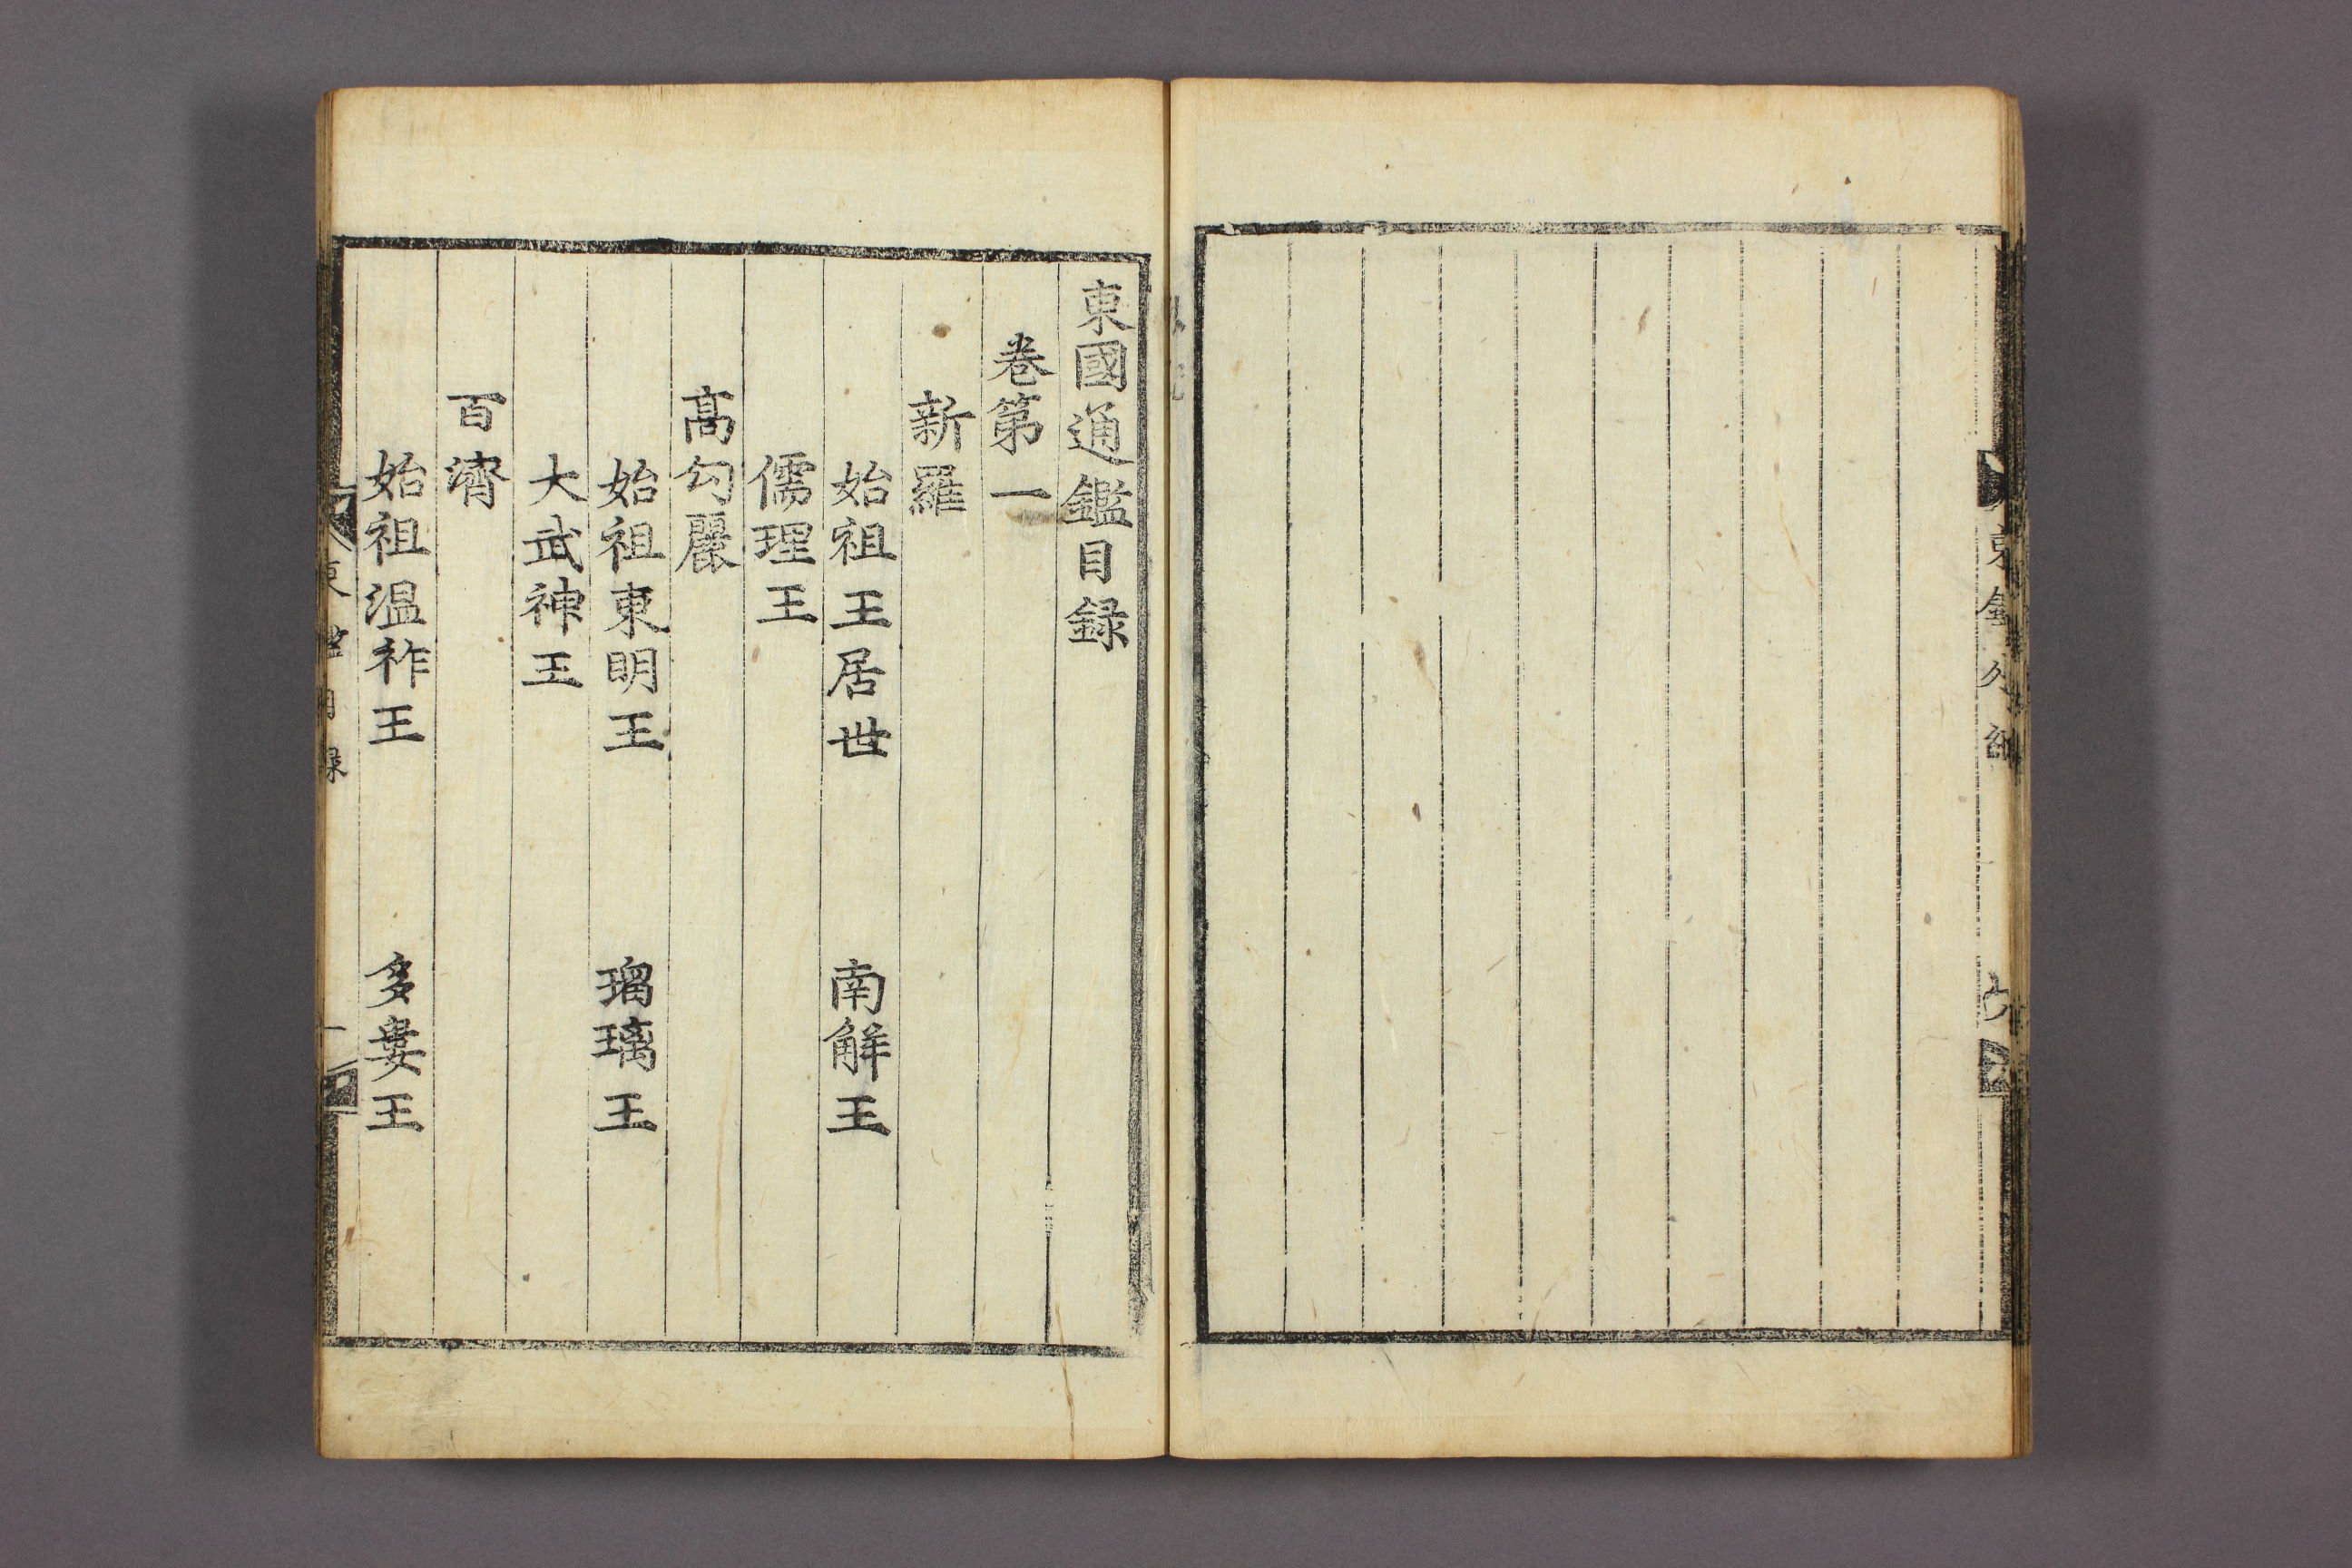 東國通鑑目録
卷第一
新羅
始祖王居世 南解王
儒理王
高勾麗
始祖東明王 瑠璃王
大武神王
百濟
始祖温祚王 多婁王